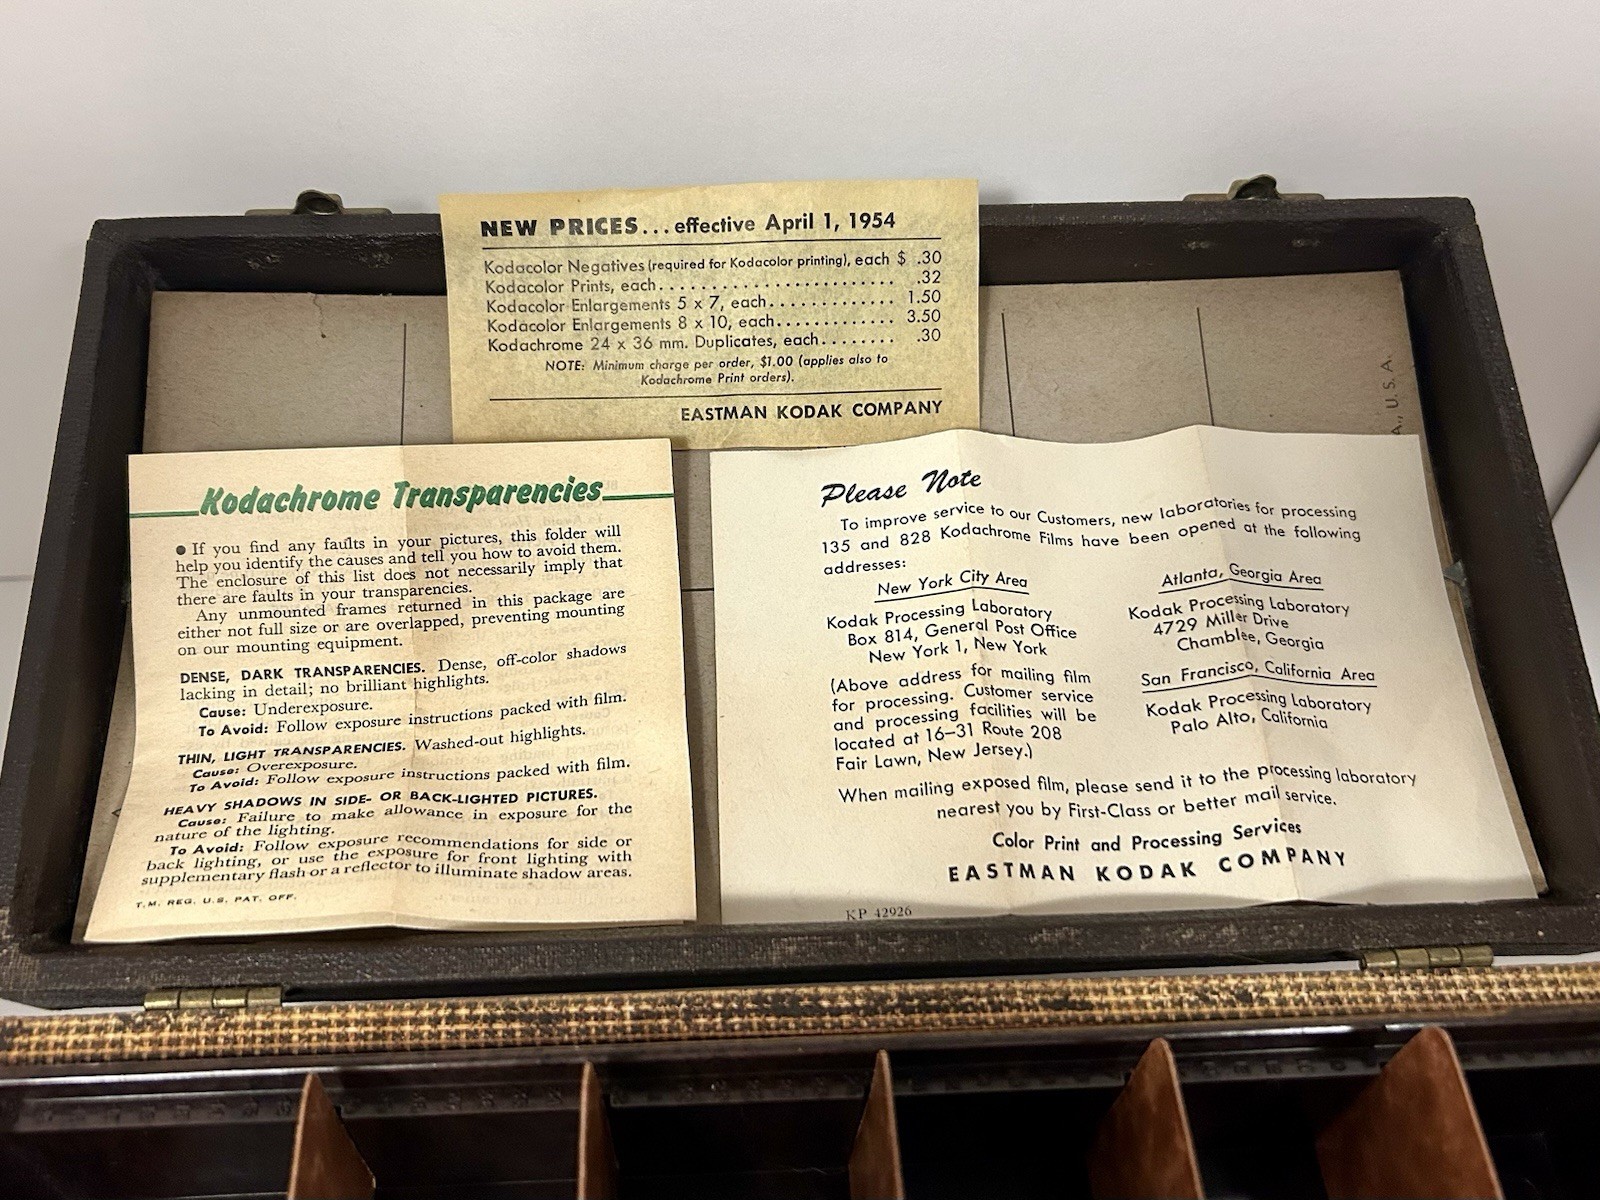 NEW PRICES...effective April 1, 1954
Kodacolor Negatives (required for Kodacolor printing), each $ .30
Kodacolor Prints, each........................ .32
Kodacolor Enlargements 5 x 7, each............. 1.50
Kodacolor Enlargements 8 x 10, each............ 3.50
Kodachrome 24 x 36 mm. Duplicates, each........ .30
NOTE: Minimum charge per order, $1.00 (applies also to
Kodachrome Print orders).
EASTMAN KODAK COMPANY
A., U.S.A.
Kodachrome Transparencies
● If you find any faults in your pictures, this folder will
help you identify the causes and tell you how to avoid them.
The enclosure of this list does not necessarily imply that
there are faults in your transparencies.
Any unmounted frames returned in this package are
either not full size or are overlapped, preventing mounting
on our mounting equipment.
DENSE, DARK TRANSPARENCIES. Dense, off-color shadows
lacking in detail; no brilliant highlights.
Cause: Underexposure.
To Avoid: Follow exposure instructions packed with film.
THIN, LIGHT TRANSPARENCIES. Washed-out highlights.
Cause: Overexposure.
To Avoid: Follow exposure instructions packed with film.
HEAVY SHADOWS IN SIDE- OR BACK-LIGHTED PICTURES.
Cause: Failure to make allowance in exposure for the
nature of the lighting.
To Avoid: Follow exposure recommendations for side or
back lighting, or use the exposure for front lighting with
supplementary flash or a reflector to illuminate shadow areas.
T.M. REG. U.S. PAT. OFF.
Please Note
To improve service to our Customers, new laboratories for processing
135 and 828 Kodachrome Films have been opened at the following
addresses:
New York City Area
Kodak Processing Laboratory
Box 814, General Post Office
New York 1, New York
(Above address for mailing film
for processing. Customer service
and processing facilities will be
located at 16-31 Route 208
Fair Lawn, New Jersey.)
Atlanta, Georgia Area
Kodak Processing Laboratory
4729 Miller Drive
Chamblee, Georgia
San Francisco, California Area
Kodak Processing Laboratory
Palo Alto, California
When mailing exposed film, please send it to the processing laboratory
nearest you by First-Class or better mail service.
Color Print and Processing Services
EASTMAN KODAK COMPANY
KP 42926